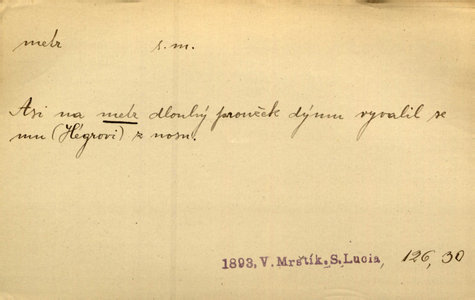 metr s. m.
Asi na metr dlouhý proužek dýmu vyvalil se
mu (Hégrovi) z nosu.
1893, V. Mrštík, S. Lucia, 126, 30